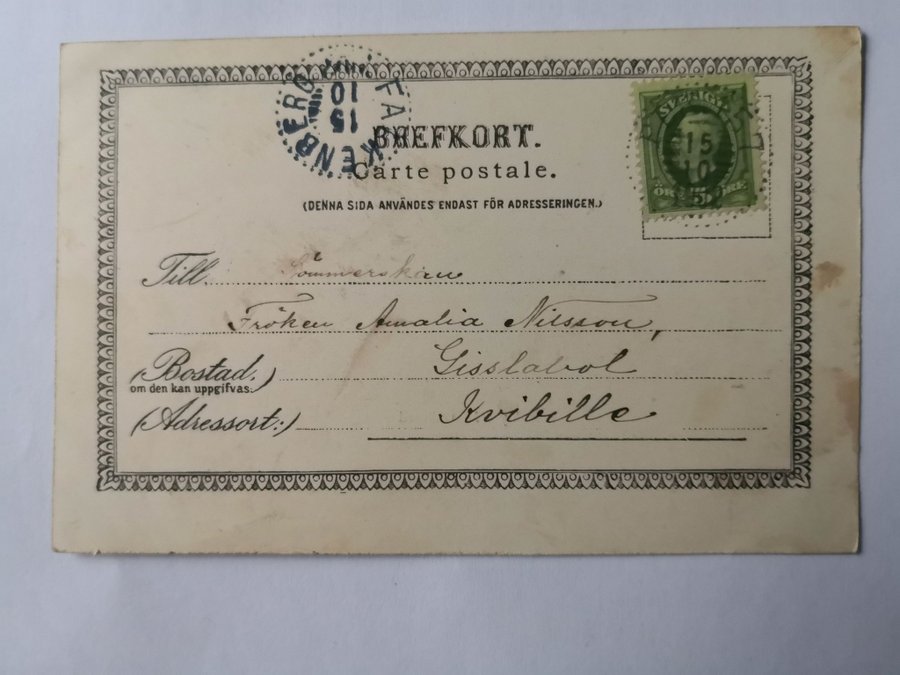 FALKENBERG
15
10
BREFKORT.
Carte postale.
(DENNA SIDA ANVÄNDES ENDAST FÖR ADRESSERINGEN.)
SVERIGE
15
10
5
ÖRE
Till Sömmerskan
Fröken Amalia Nilsson,
(Bostad.) Gisslabol
om den kan uppgifvas:
(Adressort:) Kvibille